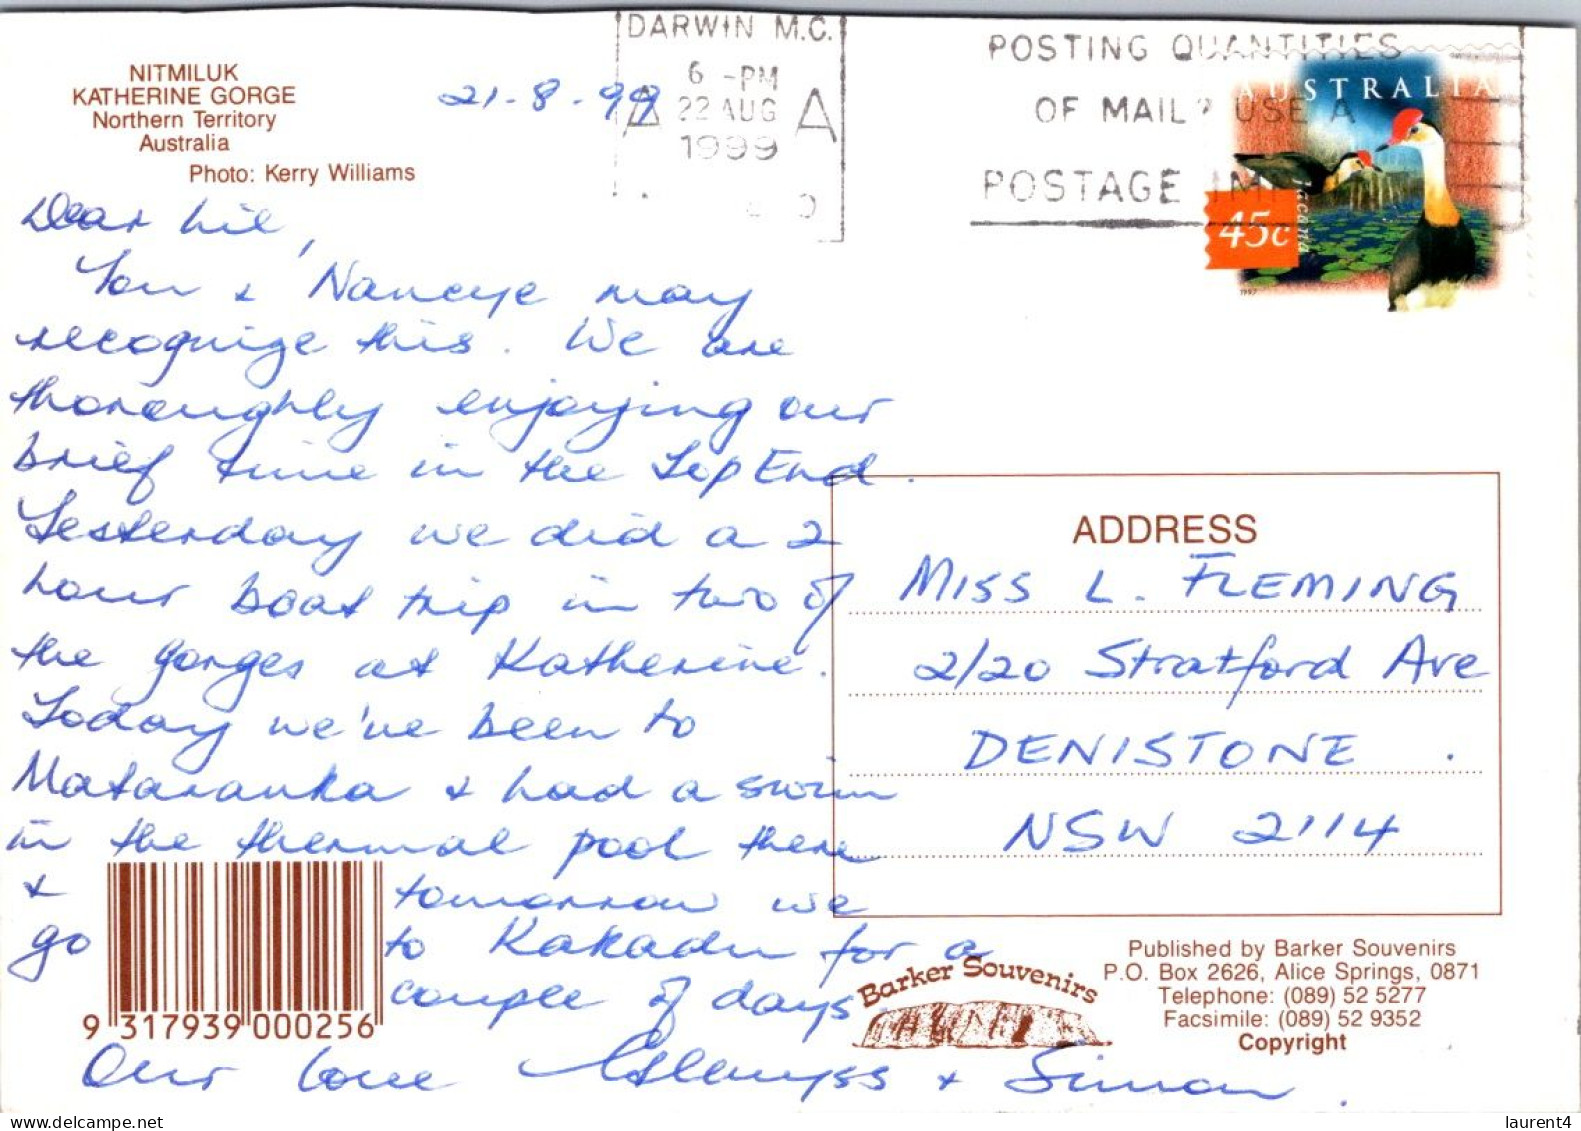 NITMILUK
KATHERINE GORGE
Northern Territory
Australia
Photo: Kerry Williams
21-8-99
DARWIN M.C.
6 -PM
22 AUG
1999
POSTING QUANTITIES
OF MAIL? USE A
POSTAGE
AUSTRALIA
Jacana
45c
1997
Dear Lil,
You & Nancye may
recognize this. We are
thoroughly enjoying our
brief time in the Top End.
Yesterday we did a 2
hour boat trip in two of
the gorges at Katherine.
Today we've been to
Mataranka & had a swim
in the thermal pool there
& tomorrow we
go to Kakadu for a
couple of days.
Our love & Simon.
9 317939 000256
ADDRESS
MISS L. FLEMING
2/20 Stratford Ave
DENISTONE.
NSW 2114
Barker Souvenirs
Published by Barker Souvenirs
P.O. Box 2626, Alice Springs, 0871
Telephone: (089) 52 5277
Facsimile: (089) 52 9352
Copyright
delcampe.net
laurent4